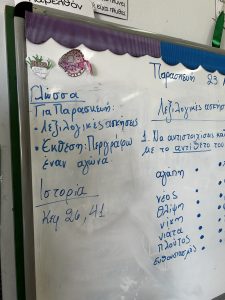 παρελθόν
Γλώσσα
Για Παρασκευή:
• Λεξιλογικές ασκήσεις
• Έκθεση: Περιγράφω
έναν αγώνα.
Ιστορία
Κεφ 26, 41
Παρασκευή 23
Λεξιλογικές
1. Να αντιστοιχίσεις
με το αντίθετο του
αγάπη
νέος
θλίψη
νίκη
νιάτα
πλούτος
ενθουσιασμός